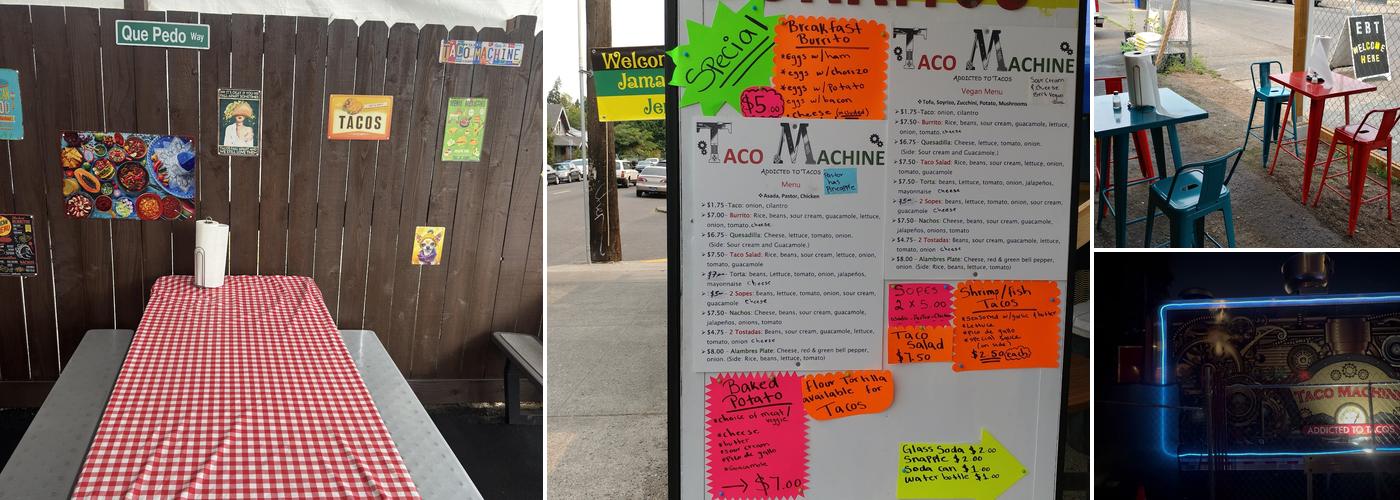 Que Pedo Way
TACO MACHINE
TACOS
Welcom
Jama
Jer
Special
$5.00
Breakfast
Burrito
*Eggs w/ham
*eggs w/chorizo
*eggs w/potato
*eggs w/bacon
*cheese (included)
TACO MACHINE
ADDICTED TO TACOS
Menu
Pastor
has
Pineapple
❖ Asada, Pastor, Chicken
➢ $1.75-Taco: onion, cilantro
➢ $7.00- Burrito: Rice, beans, sour cream, guacamole, lettuce,
onion, tomato, cheese
➢ $6.75- Quesadilla: Cheese, lettuce, tomato, onion.
(Side: Sour cream and Guacamole.)
➢ $7.50- Taco Salad: Rice, beans, sour cream, lettuce,
tomato, guacamole
Torta: beans, Lettuce, tomato, onion, jalapeños,
mayonnaise cheese
2 Sopes: Beans, lettuce, tomato, onion, sour cream,
guacamole cheese
➢ $7.50- Nachos: Cheese, beans, sour cream, guacamole,
jalapeños, onions, tomato
➢ $4.75- 2 Tostadas: Beans, sour cream, lettuce, tomato,
onion cheese
➢ $8.00 - Alambres Plate: Cheese, red & green bell pepper,
onion. (Side: Rice, beans, lettuce, tomato)
TACO MACHINE
ADDICTED TO TACOS
Vegan Menu
Sour Cream
& Cheese
❖ Tofu, Soyrizo, Zucchini, Potato, Mushrooms
➢ $1.75-Taco: onion, cilantro
➢ $7.50- Burrito: Rice, beans, sour cream, guacamole, lettuce,
onion, tomato, cheese
➢ $6.75- Quesadilla: Cheese, lettuce, tomato, onion.
(Side: Sour cream and Guacamole.)
➢ $7.50- Taco Salad: Rice, beans, sour cream, lettuce,
tomato, guacamole
➢ $7.50- Torta: beans, Lettuce, tomato, onion, jalapeños,
mayonnaise cheese
2 Sopes: Beans, lettuce, tomato, onion, sour cream,
guacamole cheese
➢ $7.50- Nachos: Cheese, beans, sour cream, guacamole,
jalapeños, onions, tomato
➢ $4.75- 2 Tostadas: Beans, sour cream, lettuce, tomato,
onion cheese
➢ $8.00- Alambres Plate: Cheese, red & green bell pepper,
onion. (Side: Rice, beans, lettuce, tomato)
SOPES
2 x 5.00
Asada-Pastor-Chicken
Taco
Salad
$7.50
Shrimp/fish
Tacos
*seasoned w/garlic butter
*Lettuce
*pico de gallo
*special sauce
(on side)
$2.50(each)
Baked
Potato
*choice of meat/
veggie
*cheese
*butter
*sour cream
*pico de gallo
*Guacamole
→ $7.00
Flour Tortilla
available for
Tacos
Glass Soda $2.00
Snapple $2.00
Soda can $1.00
water bottle $1.00
EBT
WELCOME
HERE
TACO MACHIN
ADDICTED TO TACOS